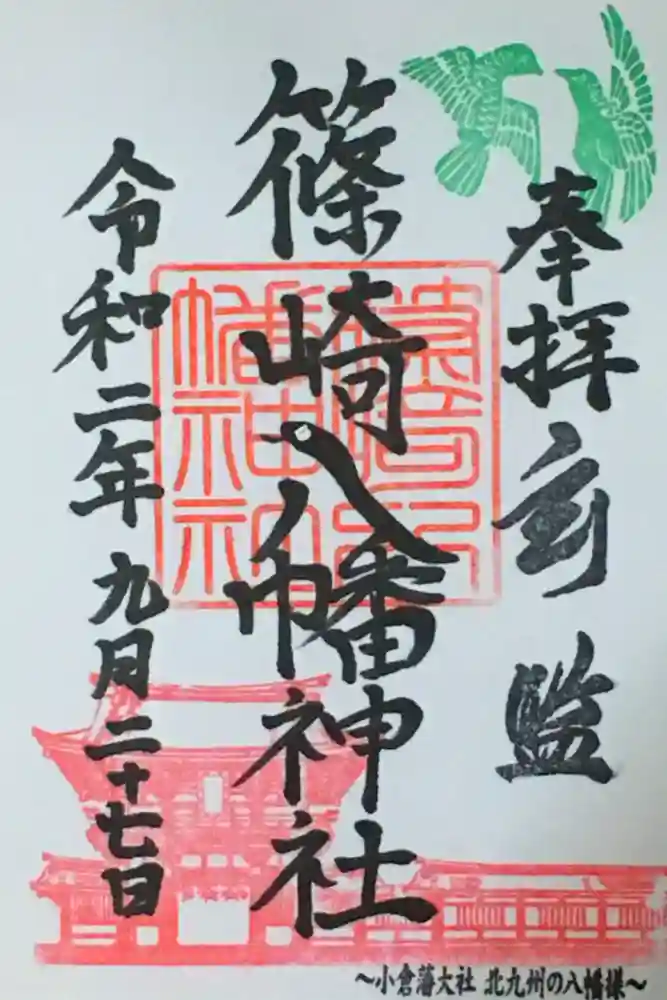 奉拝 監
篠崎八幡神社
令和二年九月二十七日
～小倉藩大社 北九州の八幡様～